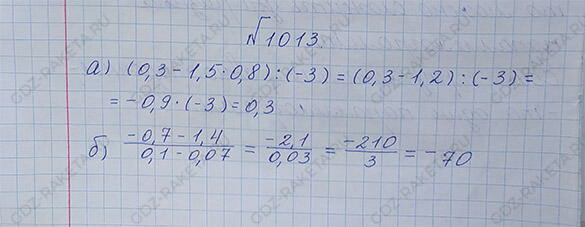 №1013.
а) (0,3 - 1,5·0,8) : (-3) = (0,3 - 1,2) : (-3) =
= -0,9·(-3) = 0,3
б) \frac{-0,7 - 1,4}{0,1 - 0,07} = \frac{-2,1}{0,03} = \frac{-210}{3} = -70
GDZ-RAKETA.RU